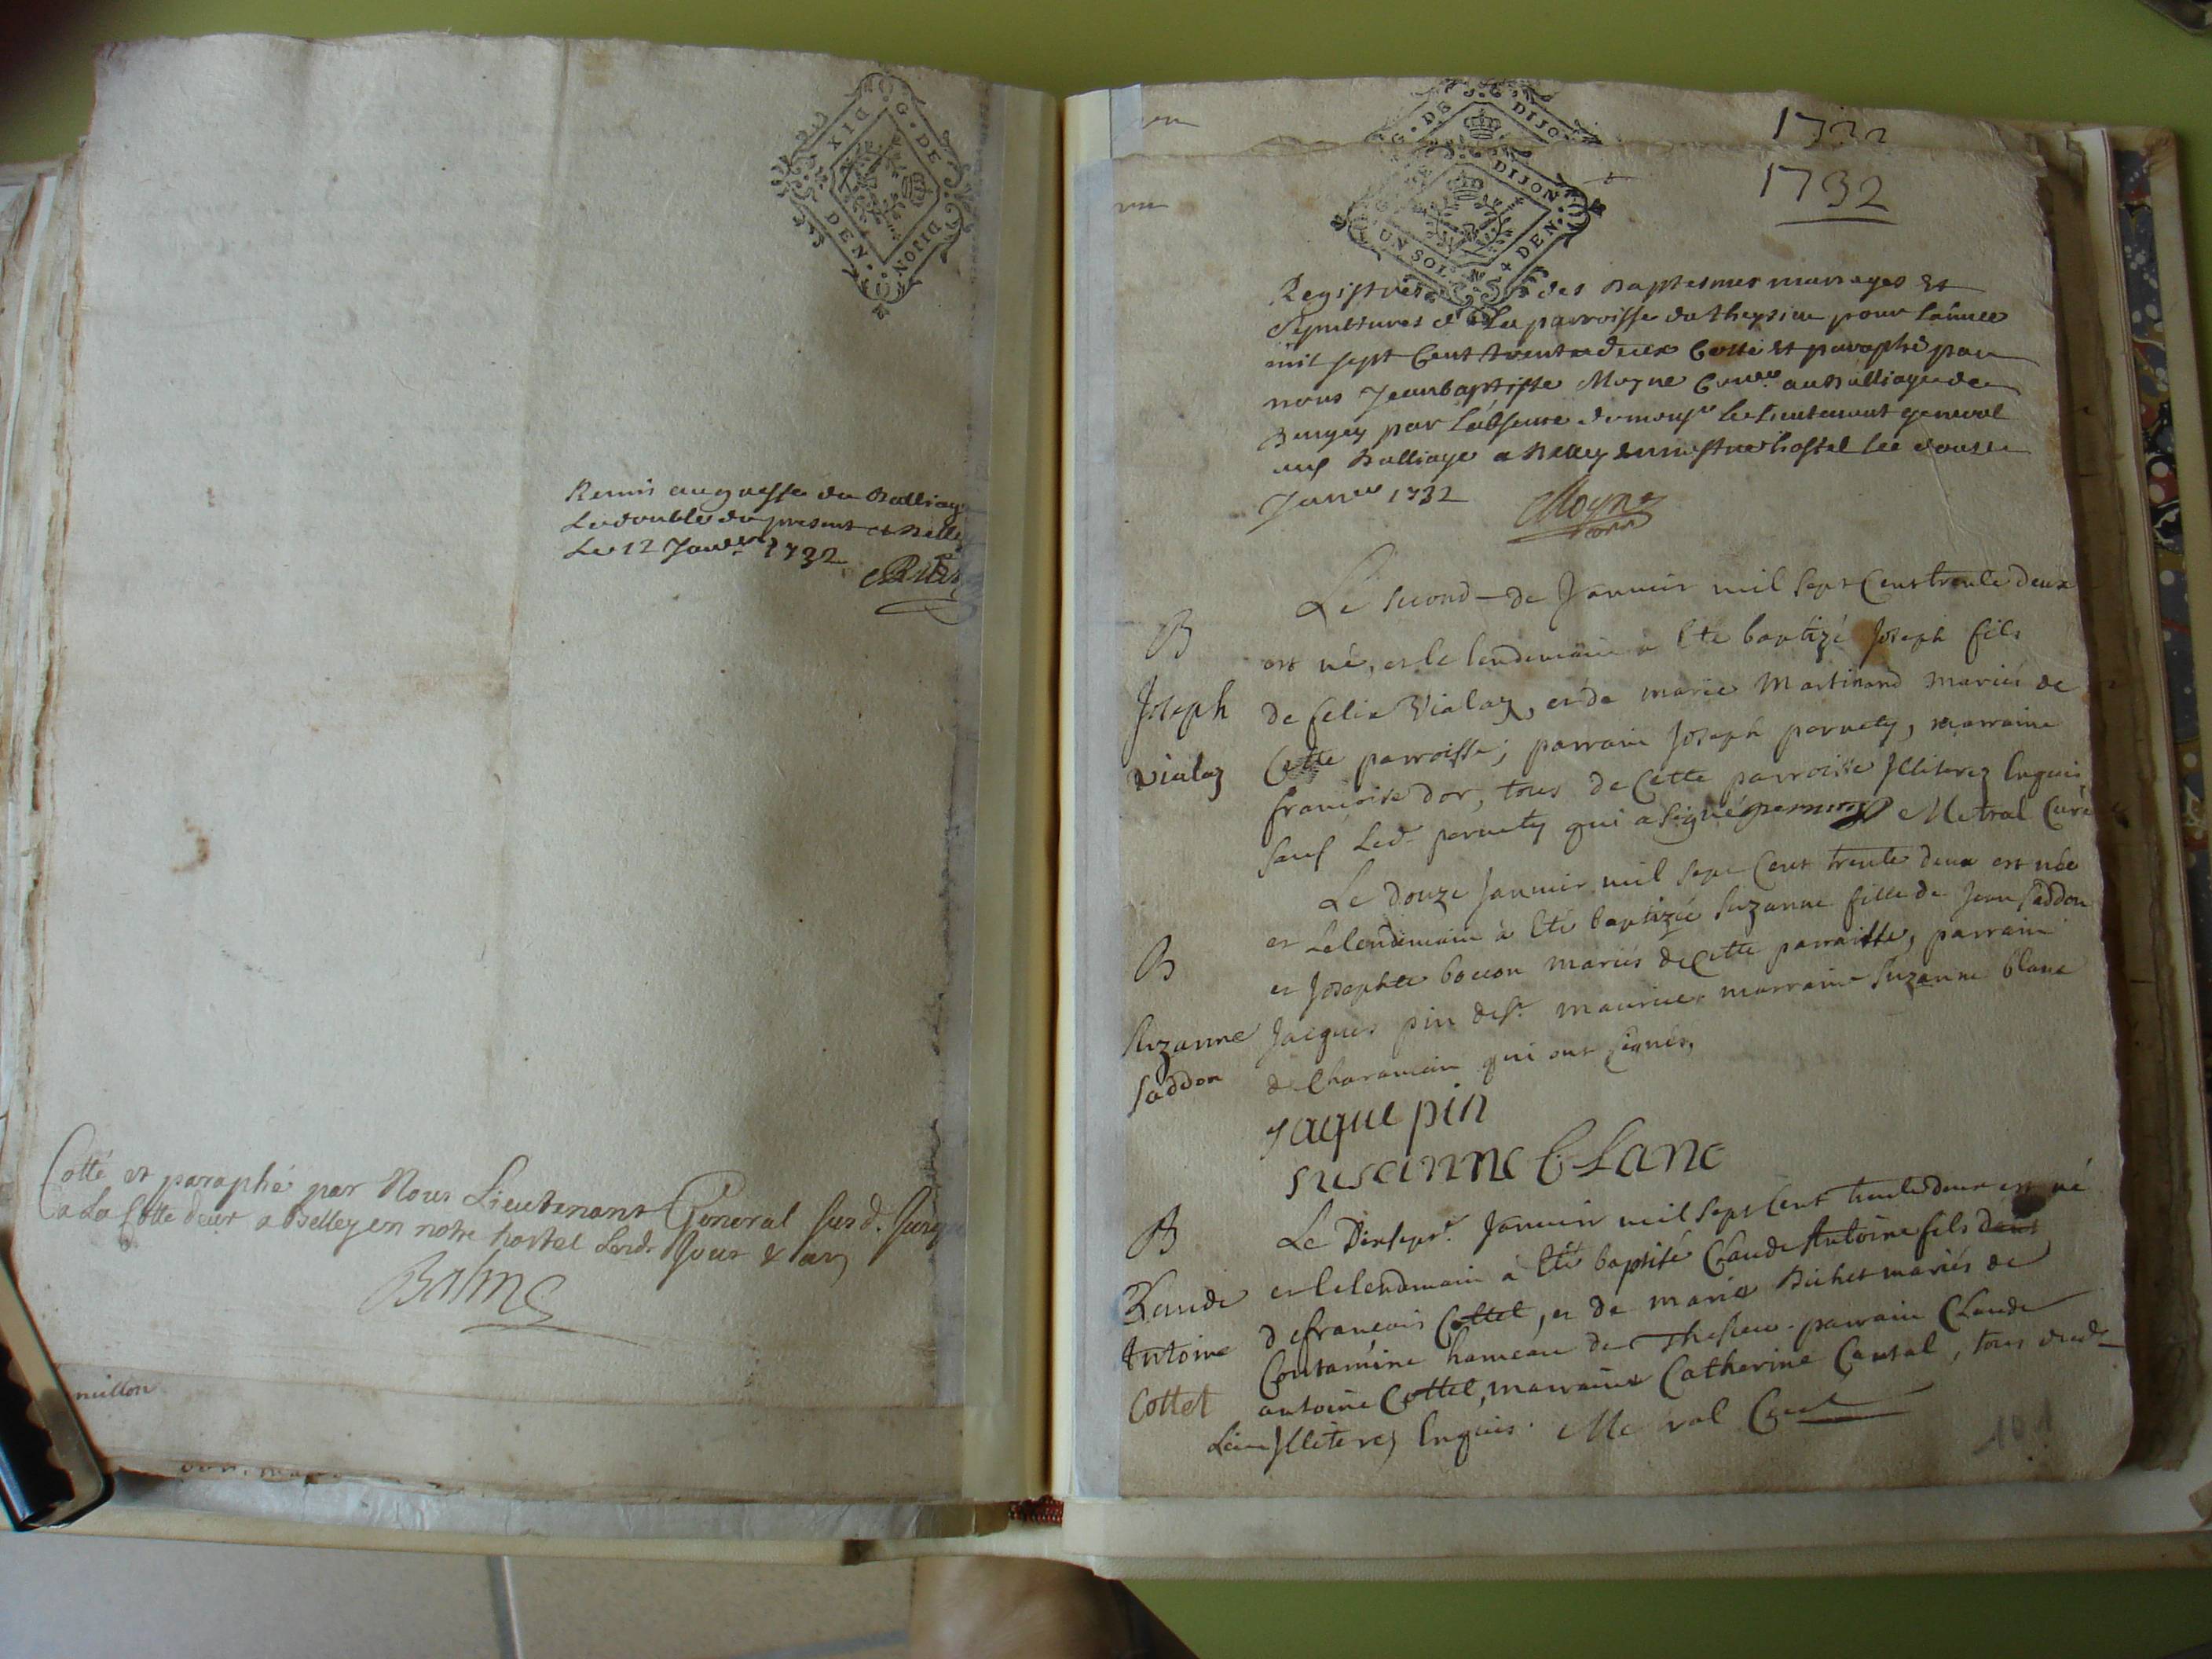 G. DE DIJON
DIX DEN.
Remis au greffe du Balliage
Le double du present a Belley
Le 12 Janv.er 1732
Cotté et paraphé par Nous Lieutenant General susd. jusq
a La Cotte deux a Belley en notre hostel Lesd. Jour & an
Balme
millon
G. DE DIJO
1732
DIJON
UN SOL 4 DEN.
1732
Registres des Baptesmes mariages Et
Sepultures de La parroisse de Thezieu pour Lannee
mil sept Cent trente deux Cotté Et paraphé par
nous Jeanbaptiste Moyne Con.er au Balliage de
Beugey par Labsence de mons.r le Lieutenant general
aud Balliage a Belley En nostre hostel Le douze
Janv.er 1732
Moyne
Le second de Janvier mil sept Cent trente deux
B
est né, et le lendemain a Eté baptizé Joseph fils
Joseph
de felix Vialaz, et de marie Martinand mariés de
Vialaz
Cette parroisse; parrain Joseph pernety, marraine
francoise dor, tous de Cette parroisse Illiterez Enquis
sauf Led. pernety qui a signé pernety Metral Curé
Le Douze Janvier mil sept Cent trente deux est née
B
et Le lendemain a Eté baptizée Suzanne fille de Jean Saddon
et Josephte bocion mariés de Cette parroisse, parrain
Suzanne
Jacques pin de S.t maurice marraine Suzanne blanc
Saddon
de Charancin qui ont signés.
Jaque pin
susanne blanc
B
Le Dixsept.e Janvier mil sept Cent trente deux est né
et le lendemain a Eté baptisé Claude Antoine fils
Claude
de francois Cottet, et de marie Bichet mariés de
Antoine
Contamine hameau de Thesieu. parrain Claude
Cottet
antoine Cottet, marraine Catherine Cantal, tous dud.
Lieu Illiterez Enquis. Metral Curé
101